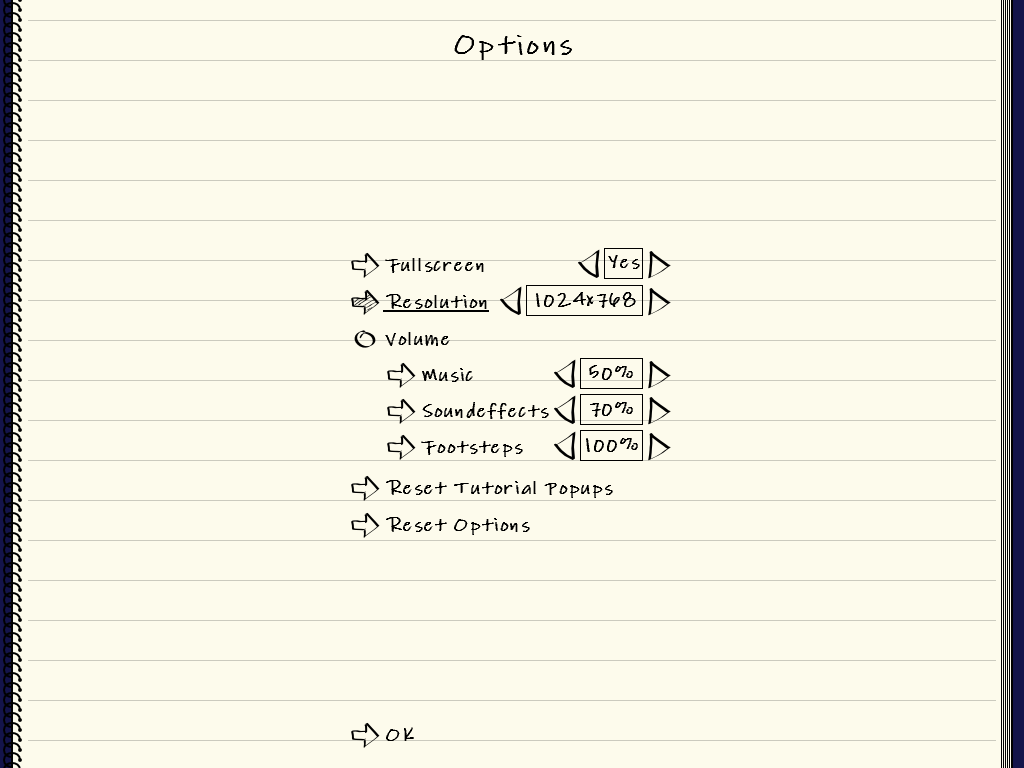 Options
Fullscreen Yes
Resolution 1024x768
Volume
Music 50%
Soundeffects 70%
Footsteps 100%
Reset Tutorial Popups
Reset Options
OK